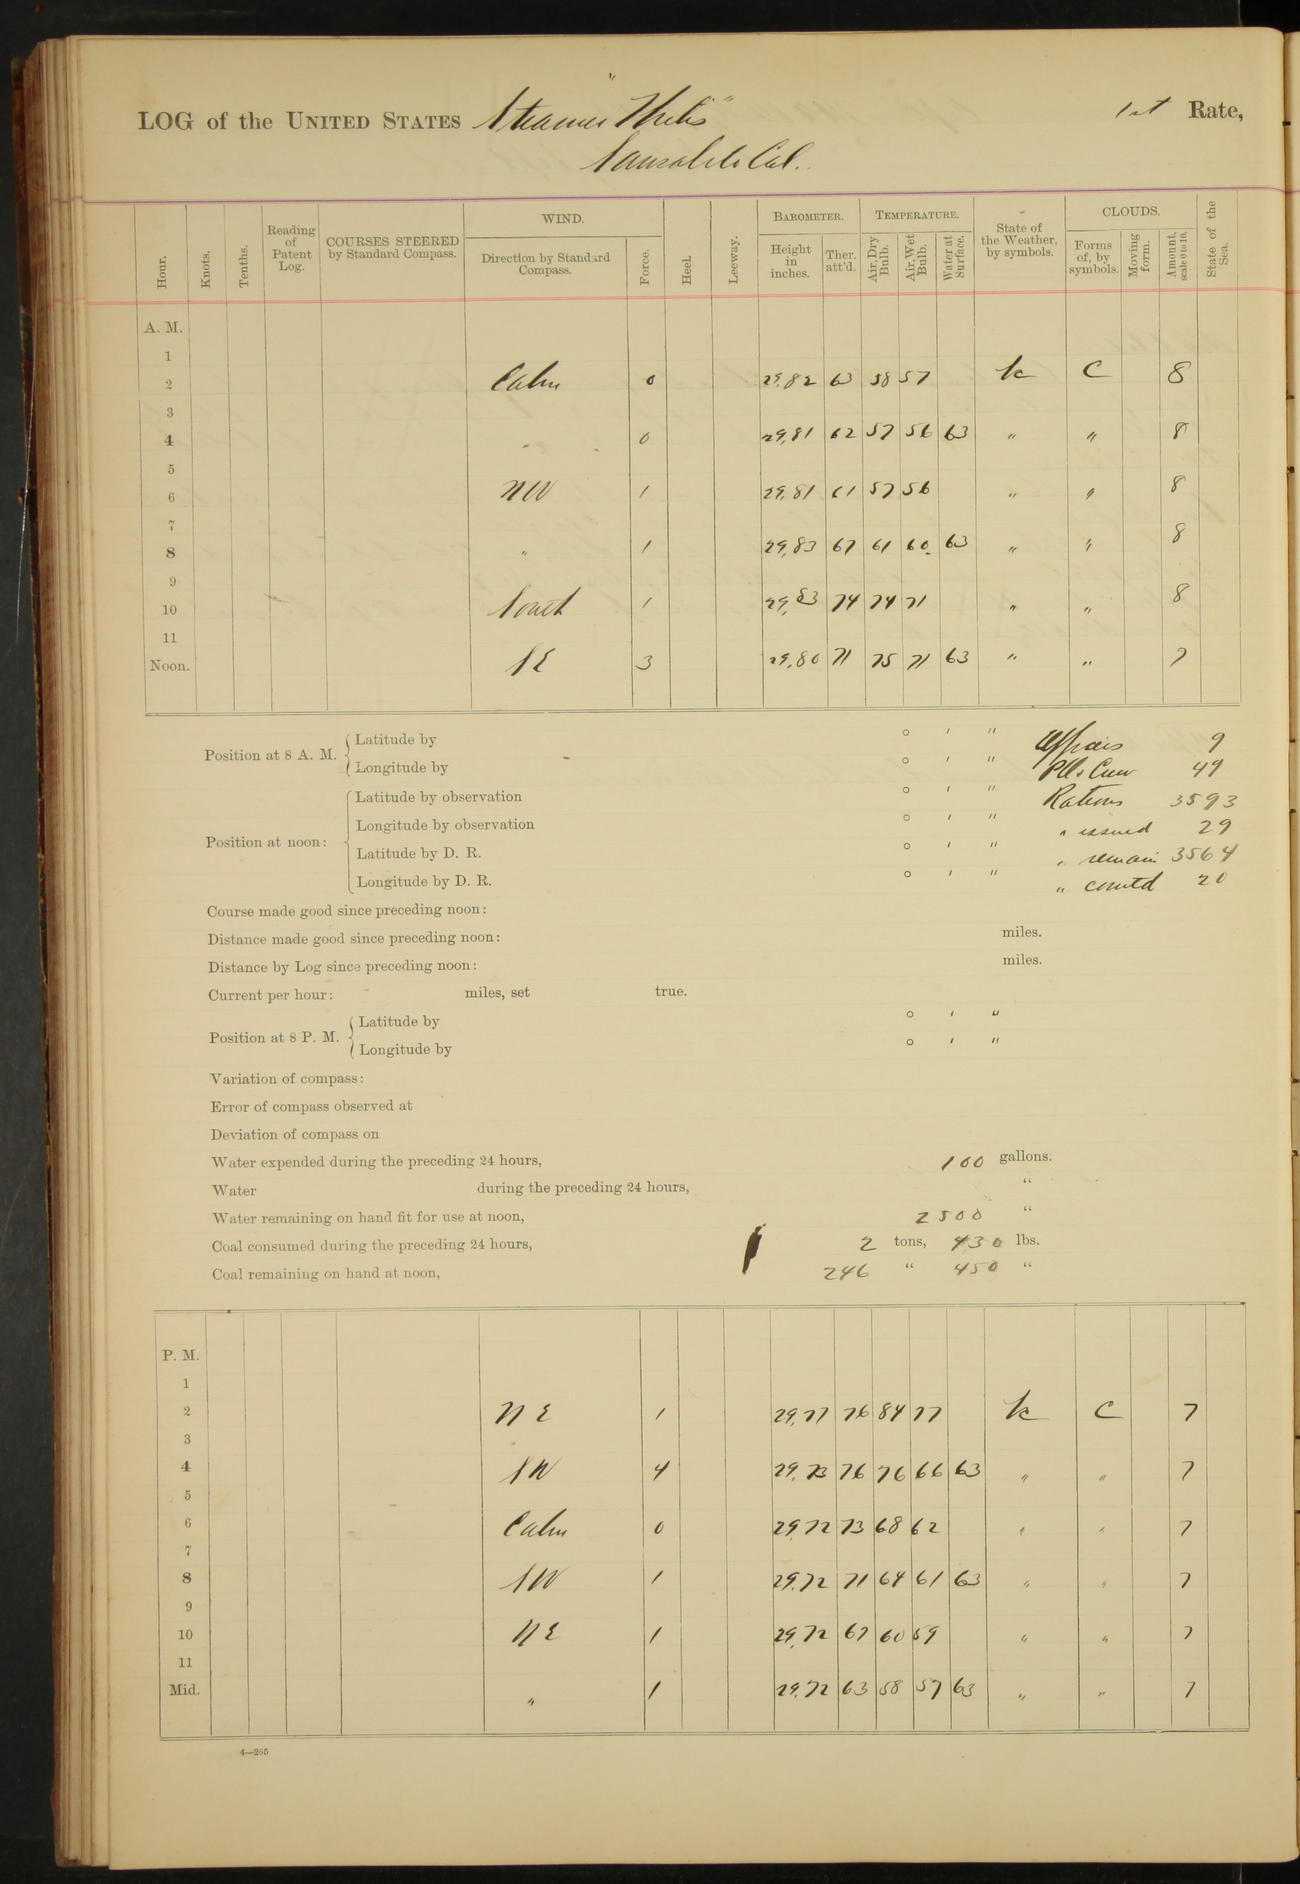 LOG of the UNITED STATES Steamer "Thetis" 1st Rate,
Sausalito Cal.
Hour. Knots. Tenths. Reading of Patent Log. COURSES STEERED by Standard Compass. WIND. Direction by Standard Compass. Force. Heel. Leeway. BAROMETER. Height in inches. Ther. att'd. TEMPERATURE. Air, Dry Bulb. Air, Wet Bulb. Water at Surface. State of the Weather, by symbols. CLOUDS. Forms of, by symbols. Moving form. Amount, scale 0 to 10. State of the Sea.
A. M.
1
2 Calm 0 29.82 63 58 57 bc C 8
3
4 " 0 29.81 62 57 56 63 " " 8
5
6 NW 1 29.81 61 57 56 " " 8
7
8 " 1 29.83 67 61 60 63 " " 8
9
10 South 1 29.83 74 74 71 " " 8
11
Noon. SE 3 29.80 71 75 71 63 " " 7
Position at 8 A. M. Latitude by ° ' " Officers 9
Longitude by ° ' " P.O. & Crew 49
Latitude by observation ° ' " Rations 3593
Longitude by observation ° ' " " issued 29
Position at noon: Latitude by D. R. ° ' " " remain 3564
Longitude by D. R. ° ' " " comtd 20
Course made good since preceding noon:
Distance made good since preceding noon: miles.
Distance by Log since preceding noon: miles.
Current per hour: miles, set true.
Position at 8 P. M. Latitude by ° ' "
Longitude by ° ' "
Variation of compass:
Error of compass observed at
Deviation of compass on
Water expended during the preceding 24 hours, 100 gallons.
Water during the preceding 24 hours, "
Water remaining on hand fit for use at noon, 2500 "
Coal consumed during the preceding 24 hours, 2 tons, 430 lbs.
Coal remaining on hand at noon, 246 " 450 "
P. M.
1
2 NE 1 29.77 76 84 77 bc C 7
3
4 SW 4 29.73 76 76 66 63 " " 7
5
6 Calm 0 29.72 73 68 62 " " 7
7
8 SW 1 29.72 71 64 61 63 " " 7
9
10 NE 1 29.72 67 60 59 " " 7
11
Mid. " 1 29.72 63 58 57 63 " " 7
4—265